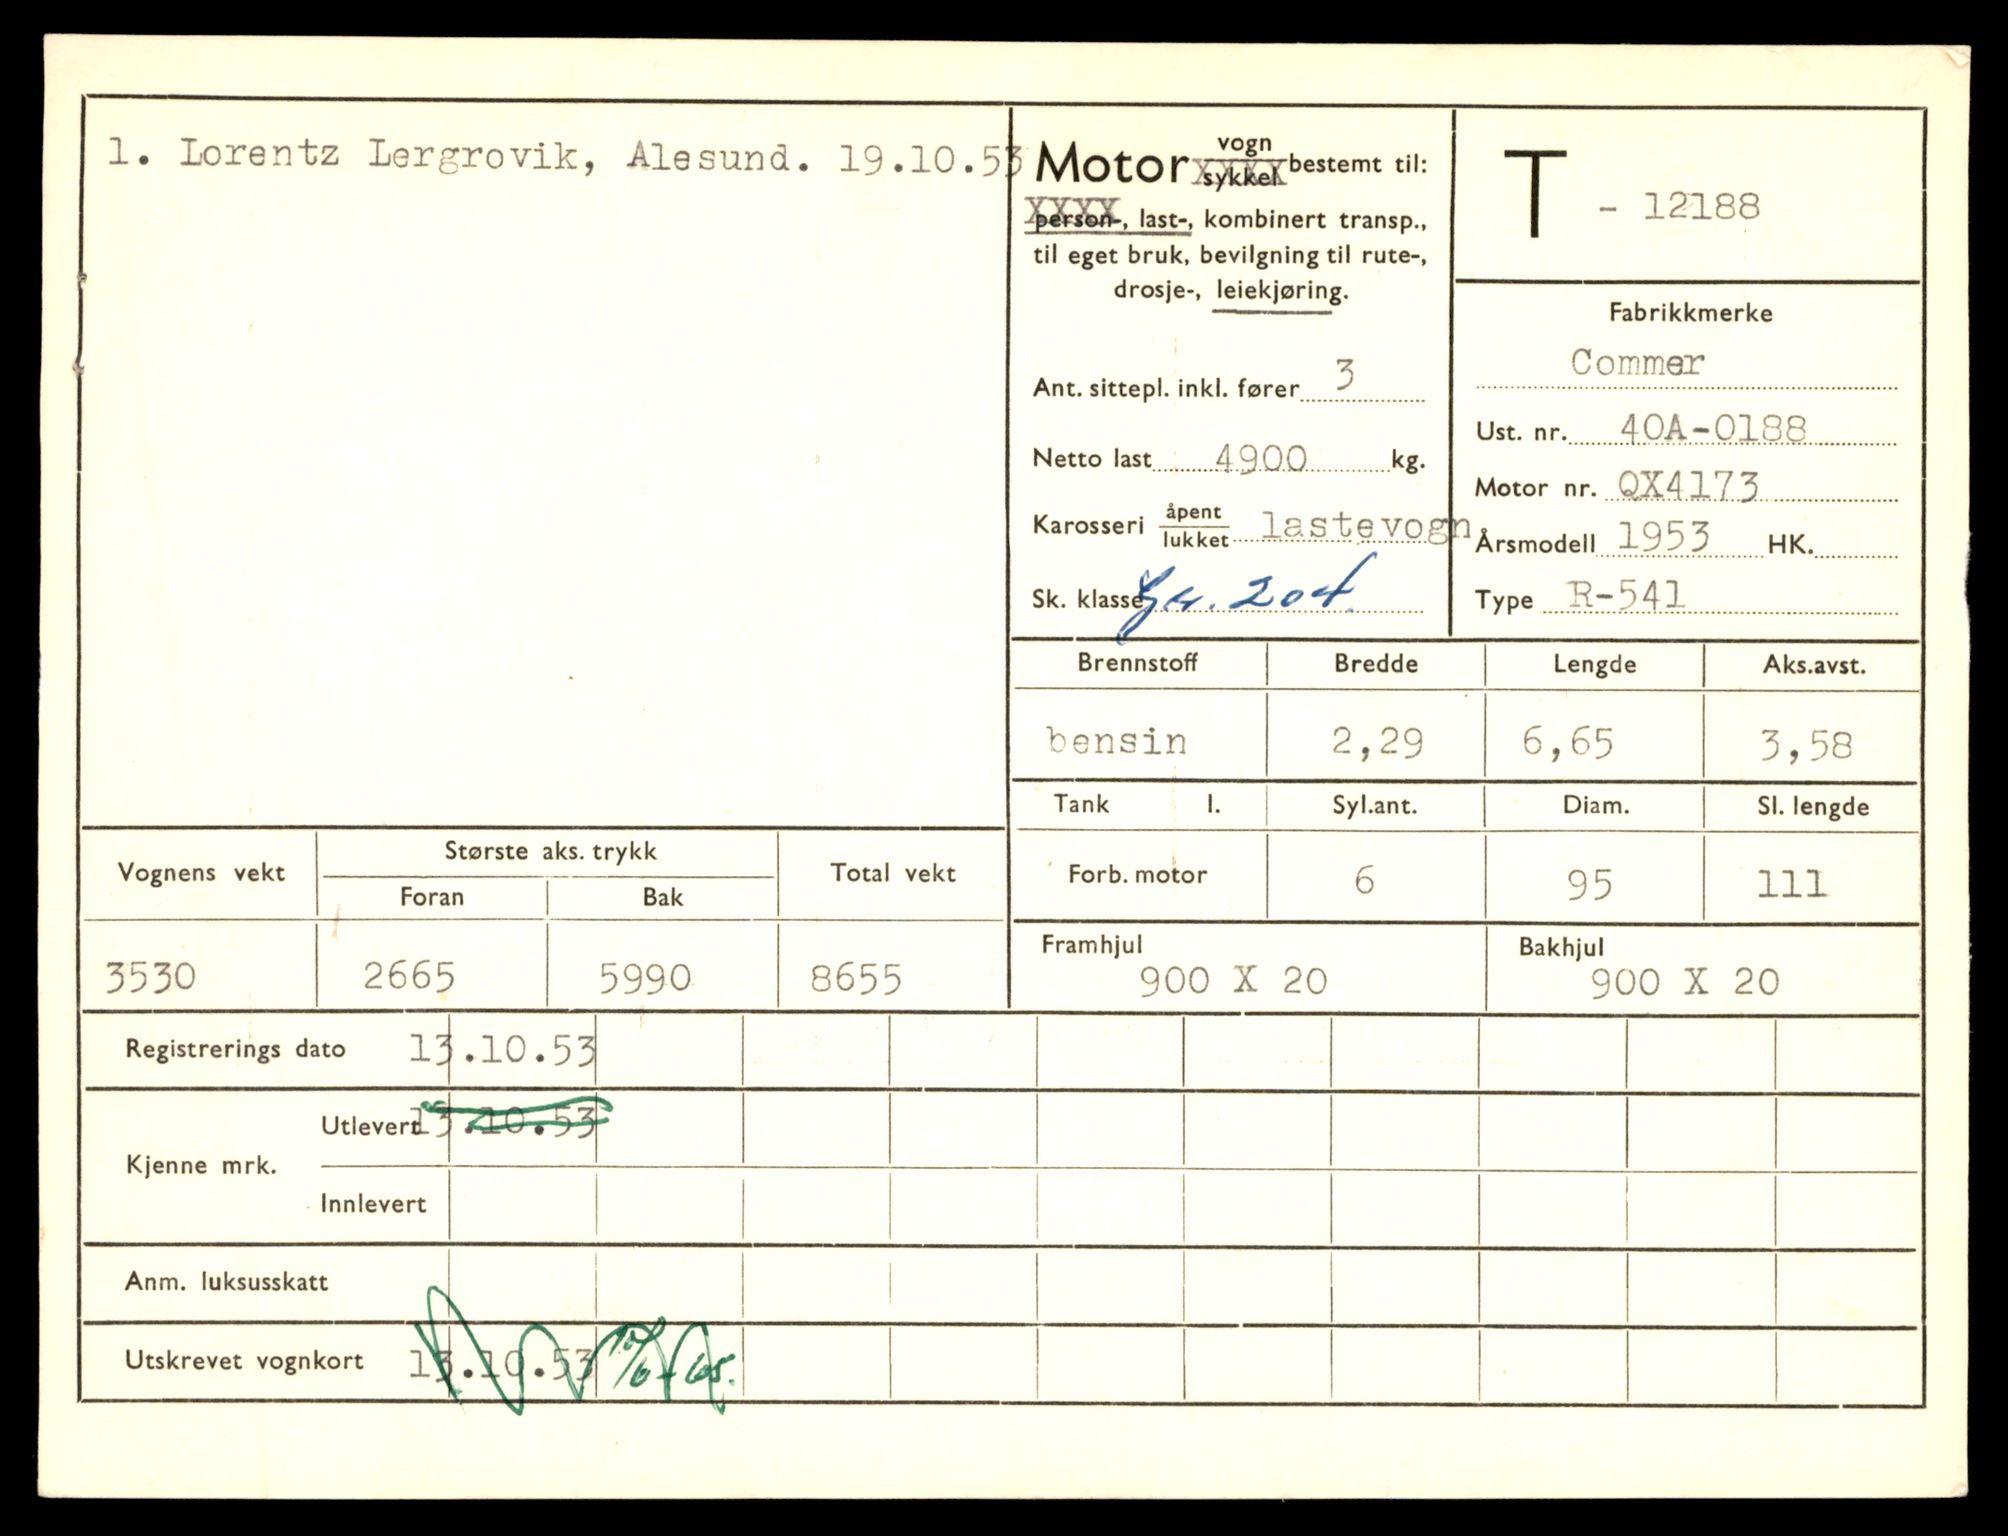 1. Lorentz Lergrovik, Alesund. 19.10.53
Motor vogn bestemt til:
sykkel
person-, last-, kombinert transp.,
til eget bruk, bevilgning til rute-,
drosje-, leiekjøring.
Ant. sittepl. inkl. fører 3
Netto last 4900 kg.
Karosseri åpent lastevogn
lukket
Sk. klasse 204.
T - 12188
Fabrikkmerke
Commer
Ust. nr. 40A-0188
Motor nr. QX4173
Årsmodell 1953 HK.
Type R-541
Brennstoff Bredde Lengde Aks.avst.
bensin 2,29 6,65 3,58
Tank l. Syl.ant. Diam. Sl. lengde
Forb. motor 6 95 111
Framhjul Bakhjul
900 X 20 900 X 20
Vognens vekt Største aks. trykk Total vekt
Foran Bak
3530 2665 5990 8655
Registrerings dato 13.10.53
Kjenne mrk. Utlevert 13.10.53
Innlevert
Anm. luksusskatt
Utskrevet vognkort 13.10.53